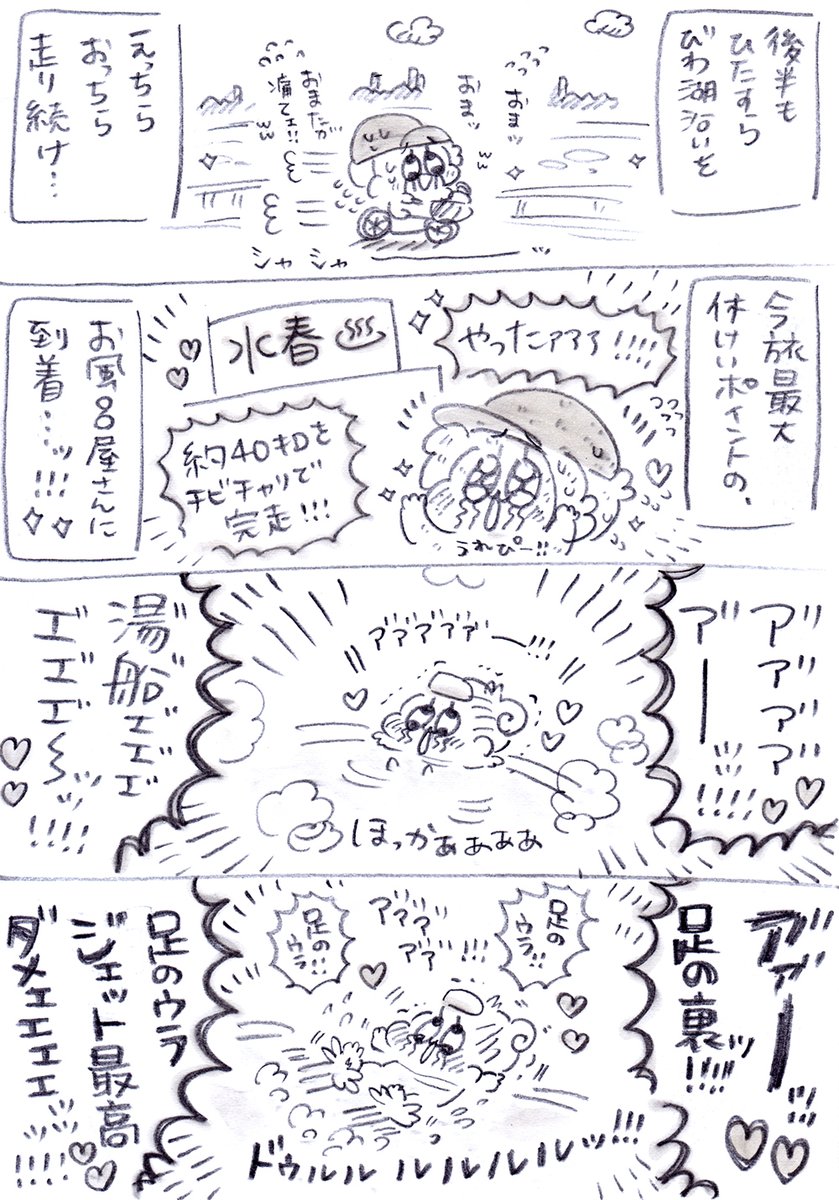 後半も
ひたすら
びわ湖沿いを
おまッ
おまッ
おまたが
痛てェ…
シャ シャ ーッ
えっちら
おっちら
走り続け…
今旅最大
休けいポイントの、
やったァァァ!!!!
水春
うれぴー!!
約40キロを
チビチャリで
完走!!!
お風呂屋さんに
到着…ッ!!!
ア゛ア゛ア゛ア゛
ア゛ー!!!!
ア゛ア゛ア゛ア゛ア゛ー!!!
ほっかぁぁぁぁ
湯゛船゛ェ゛ェ゛ェ
エ゛エ゛エ゛〜ッ!!!!
ア゛ア゛ーッ!!
足の裏ッ!!!!
足の
ウラ!!
ア゛ア゛ア゛
ア゛ア゛!!!
足の
ウラ!!
ドゥルルルルルルルッ!!!
足のウラ
ジェット最高
ダメェェェェ!!!!